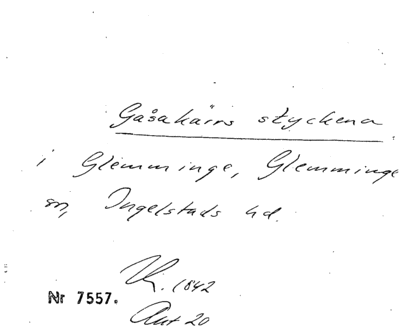 Gåsakärrs styckena
i Glemminge, Glemminge
sn, Ingelstads hd.
1842
Nr 7557.
Akt 20